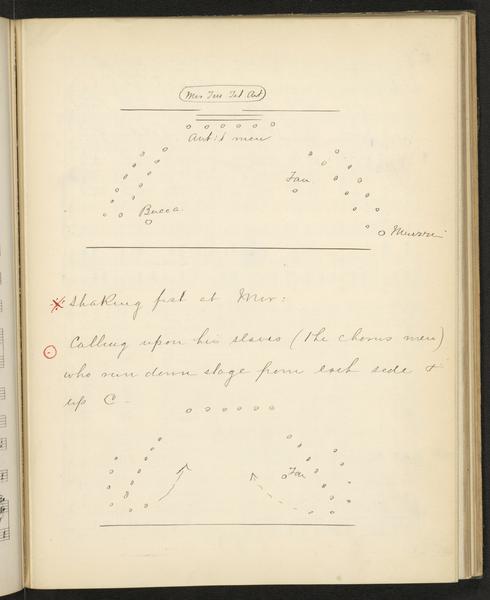 Mir Tru Tel Ant
Ant: & men
Fau
Bucca
Murzzi
※ Shaking fist at Mir:
Calling upon his slaves (the chorus men)
who run down stage from each side &
up C -
Fau